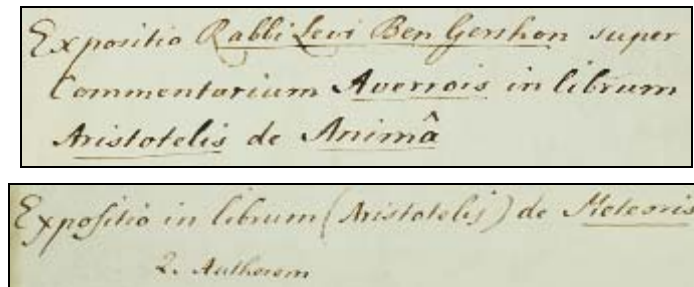 Expositio Rabbi Levi Ben Gershon super
Commentarium Averrois in librum
Aristotelis de Animâ
Expositio in librum (Aristotelis) de Meteoris
2. Autherem